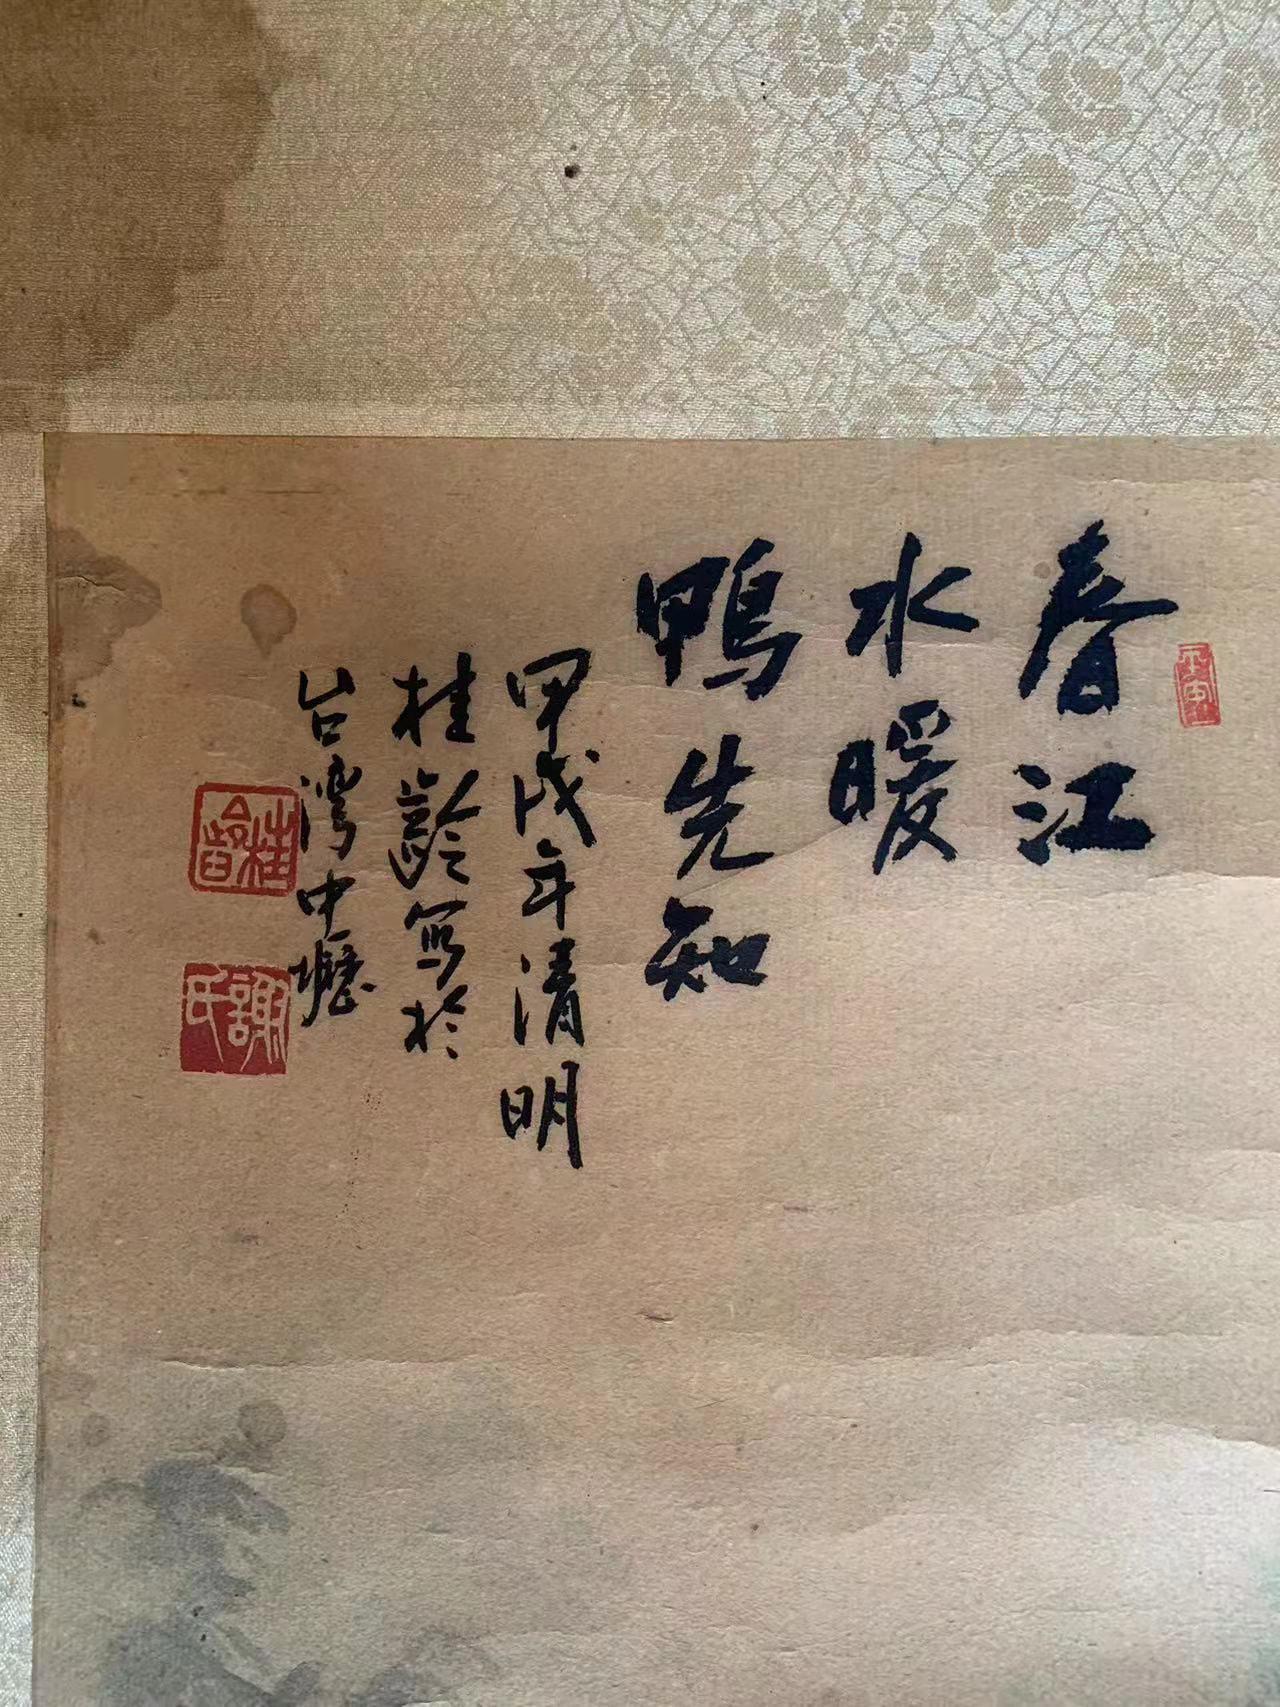 春江
水暖
鴨先知
甲戌年清明
桂齡写於
台灣中壢
桂
謝氏